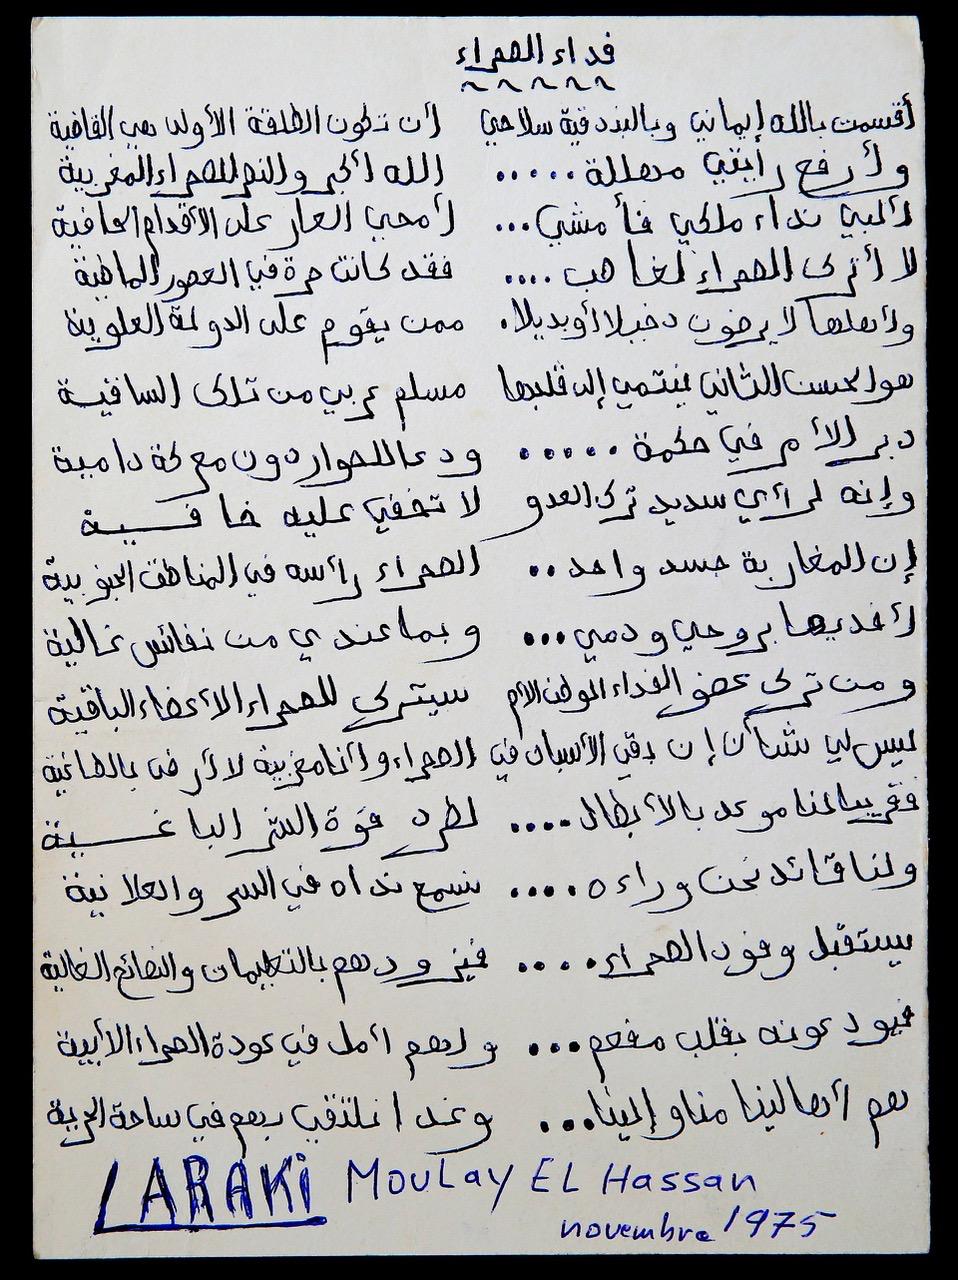 فداء الصحراء
أقسمت بالله إيماني وبالبندقية سلاحي أن تكون الطلقة الأولى هي القاضية
وأرفع رايتي مهللة ..... الله أكبر والنصر للصحراء المغربية
ألبي نداء ملكي فأمشي... أمحي العار على الأقدام الحافية
لا أترك الصحراء لغاصب .... فقد كانت حرة في العصور الماضية
وأهلها لا يرضون دخيلا أو بديلا. ممن يقوم على الدولة العلوية
هو الحسن الثاني ينتمي إلى قلبها مسلم عربي من تلك الساقية
دبر الأمر في حكمة ..... ودعا للحوار دون معركة دامية
وإنه لرأي سديد ترك العدو لا تخفي عليه خافية
إن المغاربة جسد واحد .. الصحراء رأسه في المناطق الجنوبية
أفديها بروحي ودمي ... وبما عندي من نفائس غالية
ومن ترك عضو الفداء الموطن الأم سيترك للصحراء الأعضاء الباقية
ليس لي شأن إن بقي الأسبان في الصحراء وأنا مغربية لا أرضى بالطاغية
فقريبا لنا موعد بالأبطال .... لطرد قوة الشر الباغية
ولنا قائد نحن وراءه .... نسمع نداه في السر والعلانية
يستقبل وفود الصحراء .... فيزودهم بالتعليمات والنصائح الغالية
فيودعونه بقلب مفعم ... ولهم أمل في عودة الصحراء الأبية
هم أهالينا منا وإلينا ... وغدا نلتقي بهم في ساحة الحرية
LARAKi MOULAY EL Hassan
novembre 1975